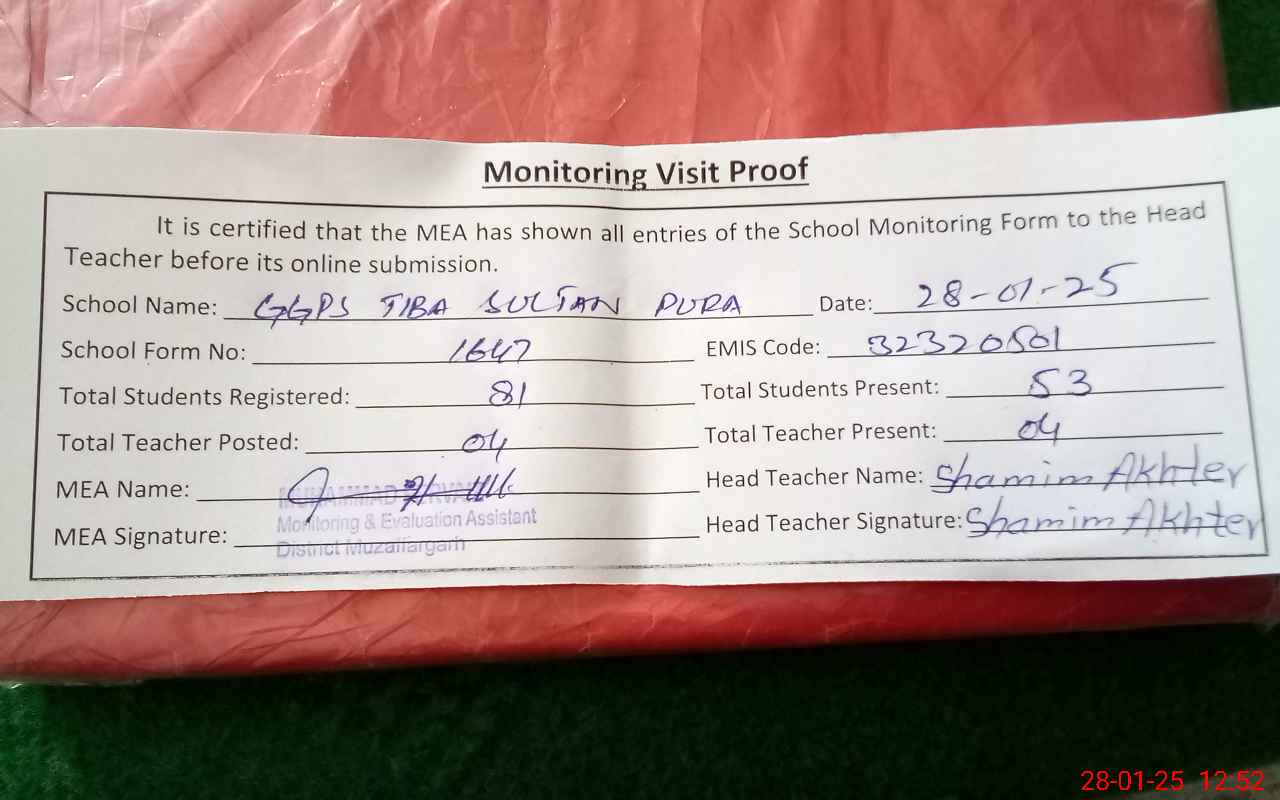 Monitoring Visit Proof
It is certified that the MEA has shown all entries of the School Monitoring Form to the Head
Teacher before its online submission.
School Name: GGPS TIBA SULTAN PURA Date: 28-01-25
School Form No: 1647 EMIS Code: 32320501
Total Students Registered: 81 Total Students Present: 53
Total Teacher Posted: 04 Total Teacher Present: 04
MEA Name: MUHAMMAD Head Teacher Name: Shamim Akhter
Monitoring & Evaluation Assistant
MEA Signature: Head Teacher Signature: Shamim Akhter
District Muzaffargarh
28-01-25 12:52